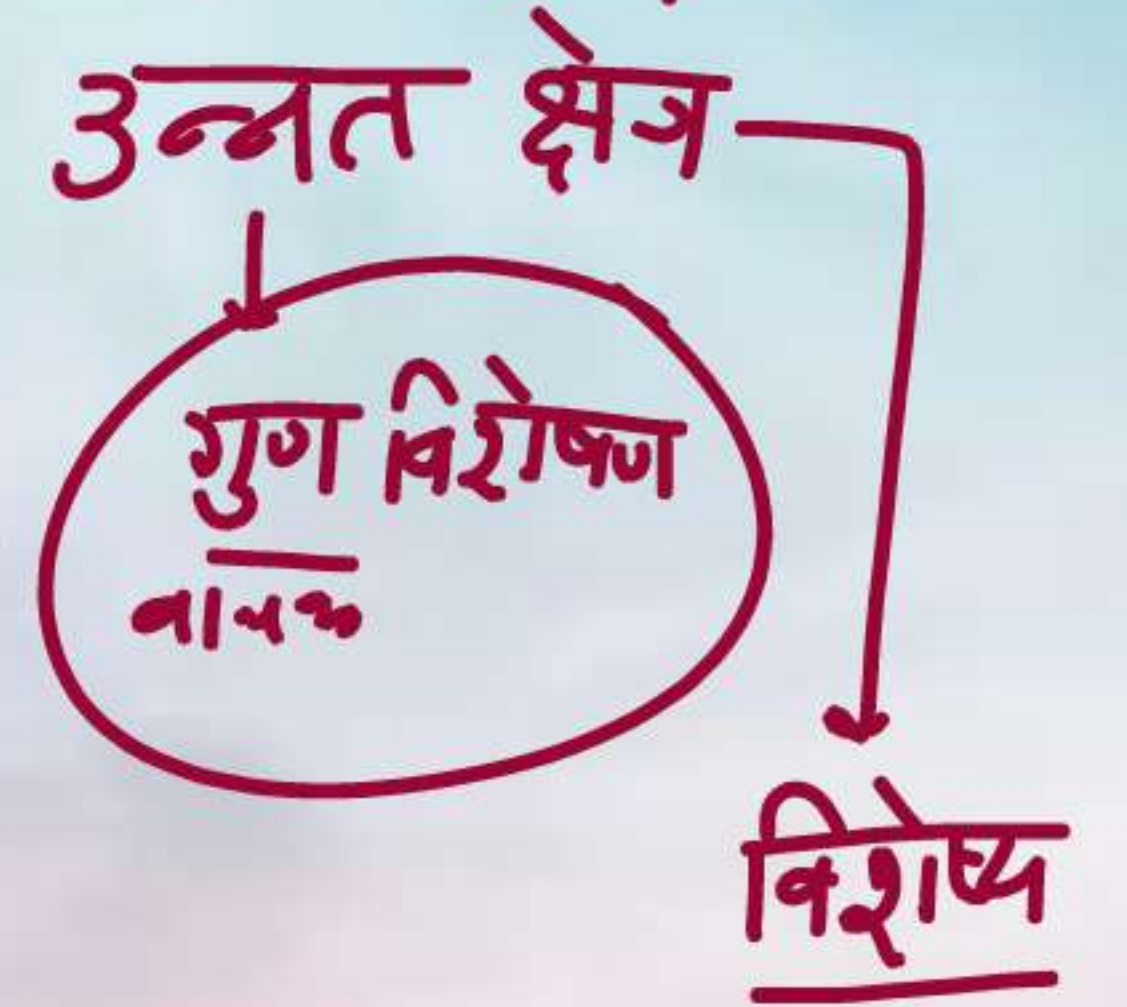 उन्नत क्षेत्र
गुण विशेषण
वाचक
विशेष्य